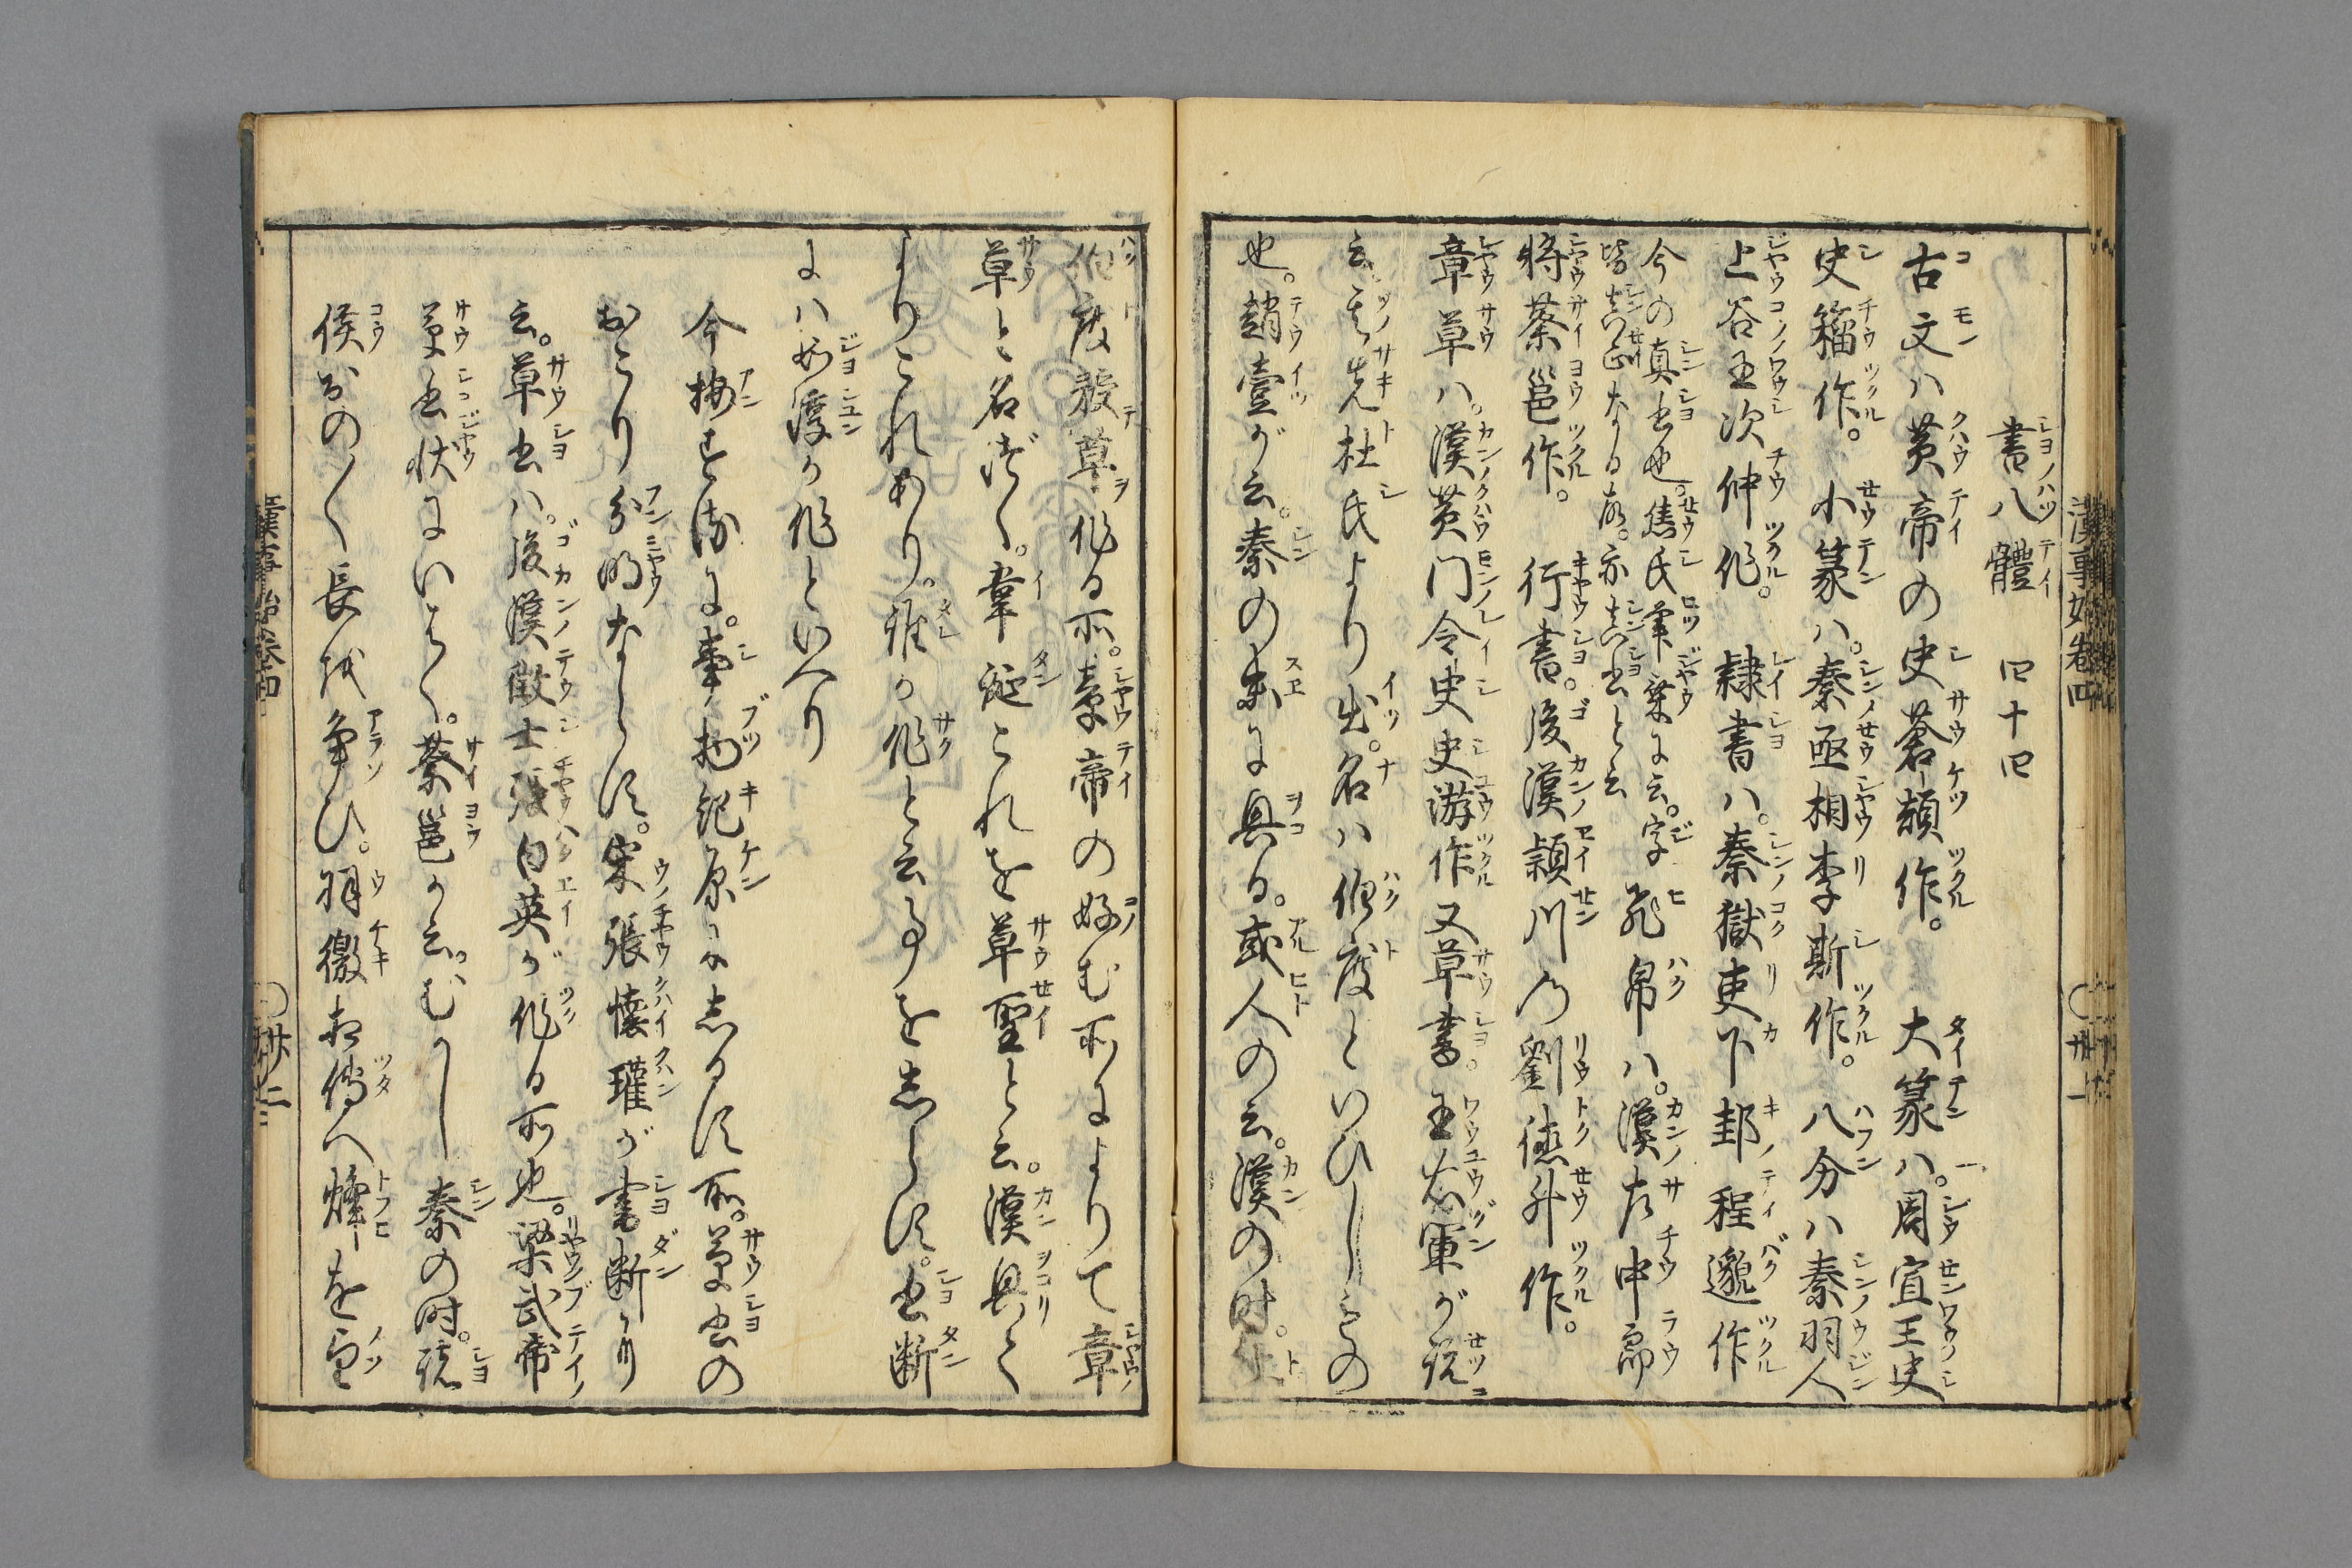 漢事始巻四
書八體 四十四
古文ハ黄帝の史蒼頡作。 大篆ハ。周宣王史
史籀作。 小篆ハ。秦丞相李斯作。 八分ハ秦羽人
上谷王次仲作。 隷書ハ。秦獄吏下邽程邈作
今の真書也。焦氏筆乗に云。字
皆真正なる故。亦真書と云
飛帛ハ。漢左中郎
将蔡邕作。 行書。後漢潁川の劉徳升作。
章草ハ。漢黄門令史史游作又草書。王右軍が説
云。其先杜氏より出。名ハ伯度といひしもの
也。趙壹が云。秦の末に興る。或人の云。漢の時。
伯度殺草作る所。章帝の好む所によりて章
草と名づく。韋誕これを草聖と云。漢興て
よりこれあり。誰か作と云事を志らず。書断
にハ如淳か作といへり
今按ずるに。事物紀原に志るす所。草書の
おこり分明ならず。宋張懐瓘が書断より
云。草書ハ。後漢徴士張伯英が作る所也。梁武帝
草書状にいはく。蔡邕か云。むかし秦の時。諸
侯おの〱長を争ひ。羽檄相傳へ烽を望
漢事始巻四